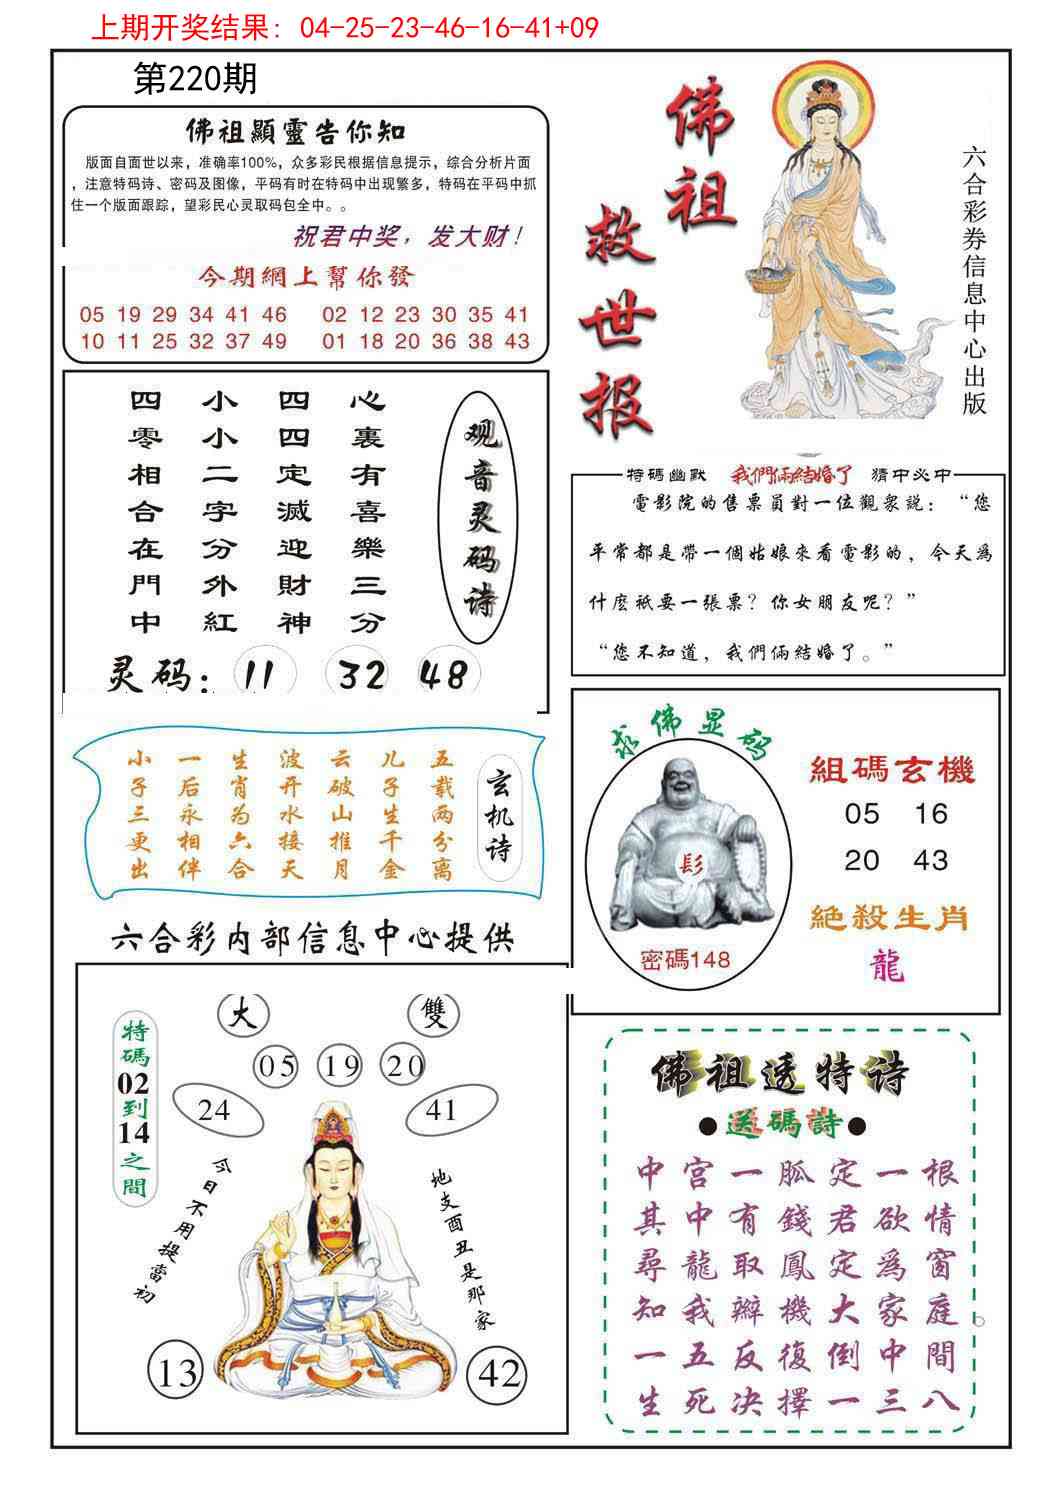 上期开奖结果：04-25-23-46-16-41+09
第220期
佛祖顯靈告你知
版面自面世以来，准确率100%，众多彩民根据信息提示，综合分析片面
，注意特码诗、密码及图像，平码有时在特码中出现繁多，特码在平码中抓
住一个版面跟踪，望彩民心灵取码包全中。。
祝君中奖，发大财！
今期網上幫你發
05 19 29 34 41 46 02 12 23 30 35 41
10 11 25 32 37 49 01 18 20 36 38 43
佛祖
救世报
六合彩券信息中心出版
观音灵码诗
心裏有喜樂三分
四四定滅迎財神
小小二字分外紅
四零相合在門中
灵码：11 32 48
特碼幽默 我們倆結婚了 猜中必中
電影院的售票員對一位觀衆説：“您
平常都是帶一個姑娘來看電影的，今天爲
什麽衹要一張票？你女朋友呢？”
“您不知道，我們倆結婚了。”
玄机诗
五载两分离
儿子生千金
云破山推月
波开水接天
生肖为六合
一后永相伴
小子三更出
求佛显码
髟
密碼148
組碼玄機
05 16
20 43
絶殺生肖
龍
六合彩内部信息中心提供
大 雙
特碼02到14之間
05 19 20
24 41
今日不用提當初
地支酉丑是那家
13 42
佛祖透特诗
●送碼詩●
中宫一胍定一根
其中有錢君欲情
尋龍取鳳定爲窗
知我辦機大家庭
一五反復倒中間
生死决擇一三八